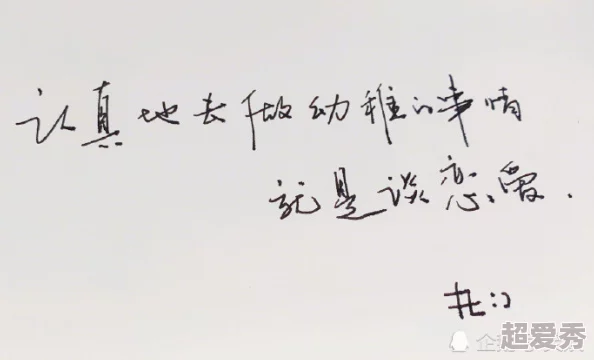 认真地去做幼稚的事情
就是谈恋爱.
超爱秀